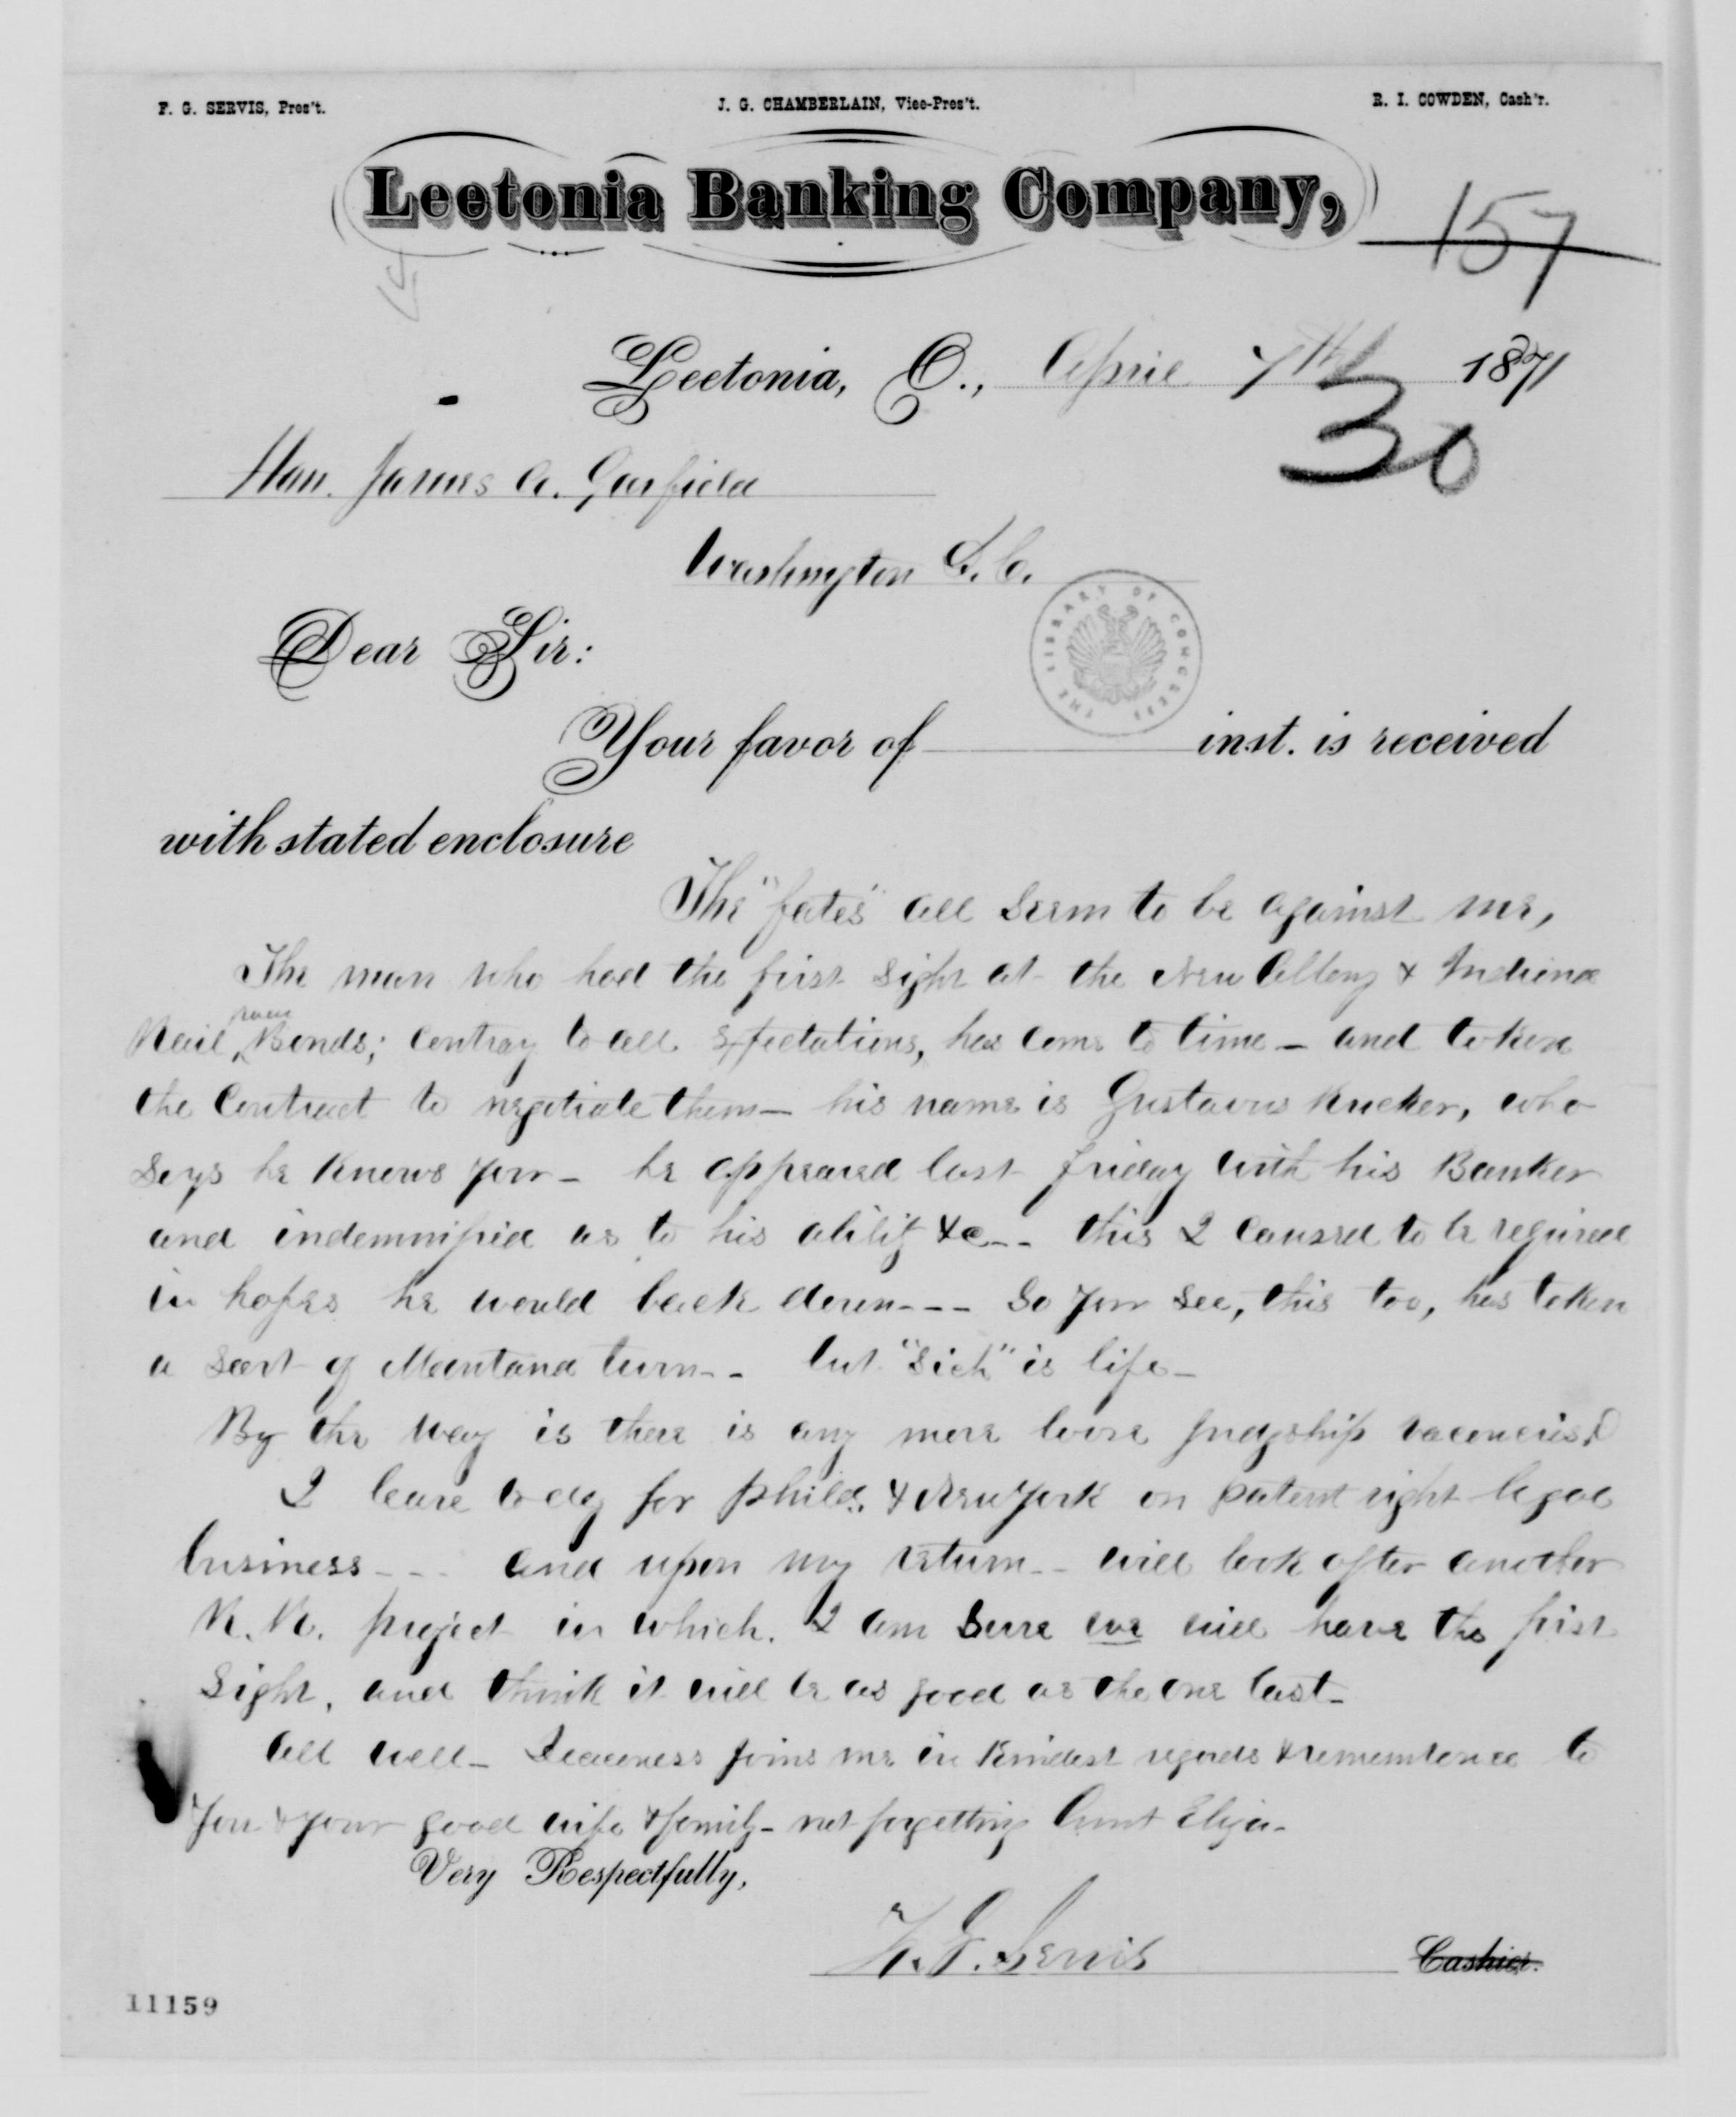 F. G. SERVIS, Pres't.
J. G. CHAMBERLAIN, Vice-Pres't.
R. I. COWDEN, Cash'r.
Leetonia Banking Company,
157
Leetonia, O., April 7th 1871
30
Hon. James A. Garfield
Washington D.C.
THE LIBRARY OF CONGRESS
Dear Sir:
Your favor of inst. is received
with stated enclosure
The "fates" all seem to be against me,
The man who had the first sight at the New Albany & Indiana
Rail road Bonds; contray to all expectations, has come to time - and taken
the Contract to negotiate them - his name is Gustavus who
says he knows you - he appeared last friday with his Banker
and indemnified as to his ability &c - - this I caused to be required
in hopes he would back down - - - So you see, this too, has taken
a sort of Montana turn - - but "sich" is life -
By the way is there is any more loose judgship vacancies?
I leave to day for Phila. & New York on patent right legal
business - - - and upon my return - - will look after another
R. R. project in which I am sure we will have the first
sight, and think it will be as good as the one last -
All well - joins me in kindest regards & rememberance to
you & your good wife & family - not forgetting Aunt Eliza -
Very Respectfully,
F. G. Servis
Cashier.
11159